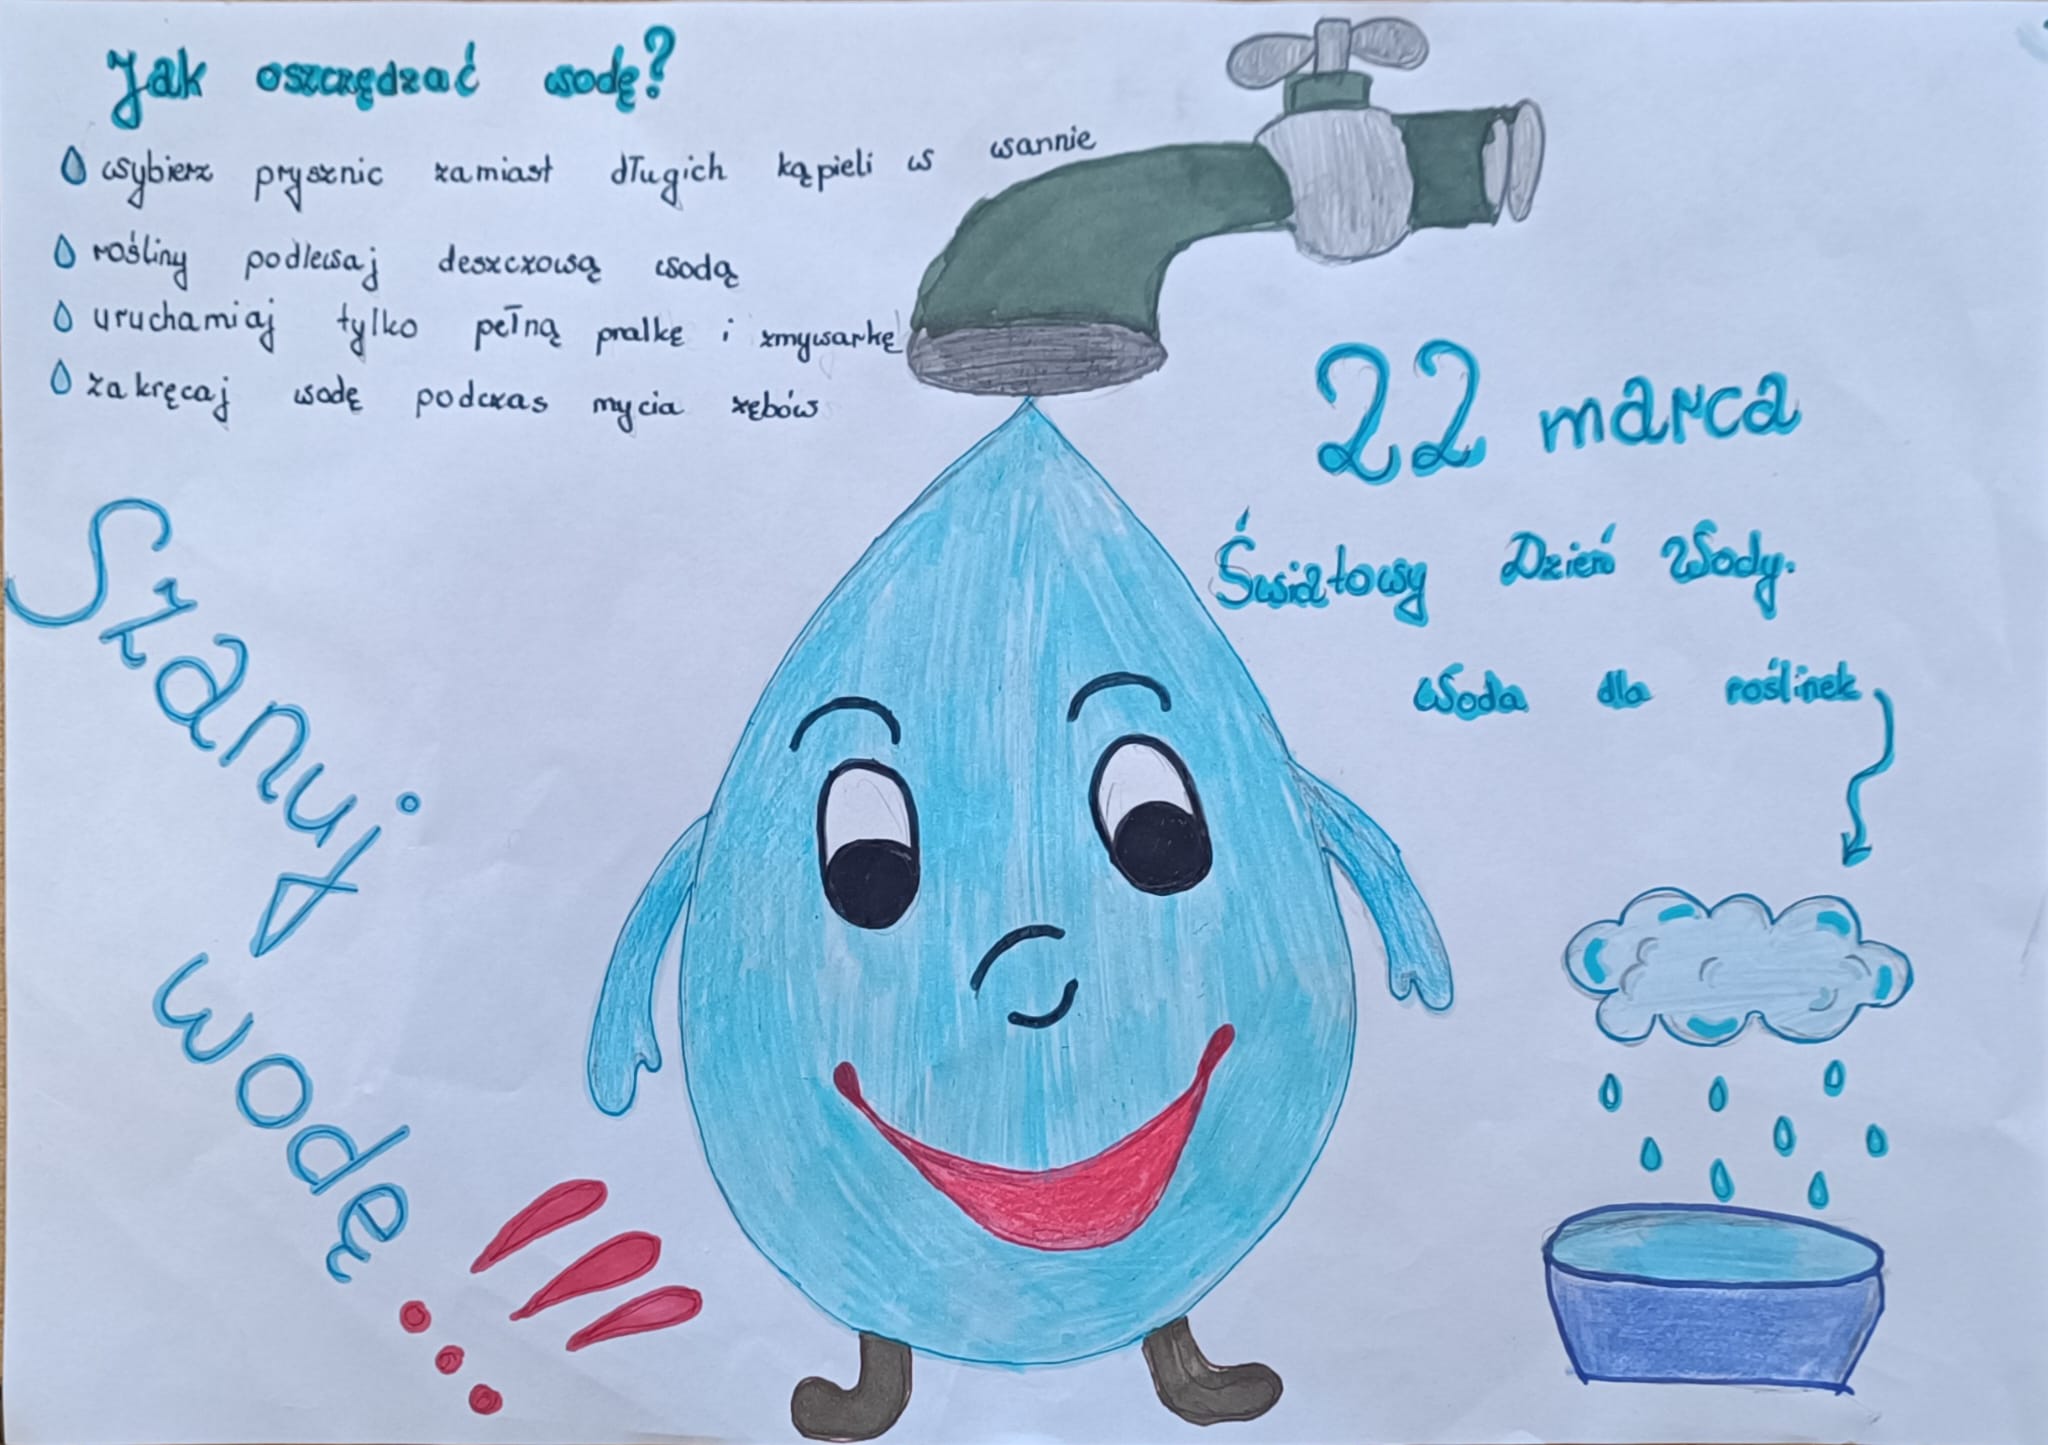 Jak oszczędzać wodę?
wybierz prysznic zamiast długich kąpieli w wannie
rośliny podlewaj deszczową wodą
uruchamiaj tylko pełną pralkę i zmywarkę
zakręcaj wodę podczas mycia zębów
22 marca
Światowy Dzień Wody.
Woda dla roślinek
Szanuj
wodę!!!